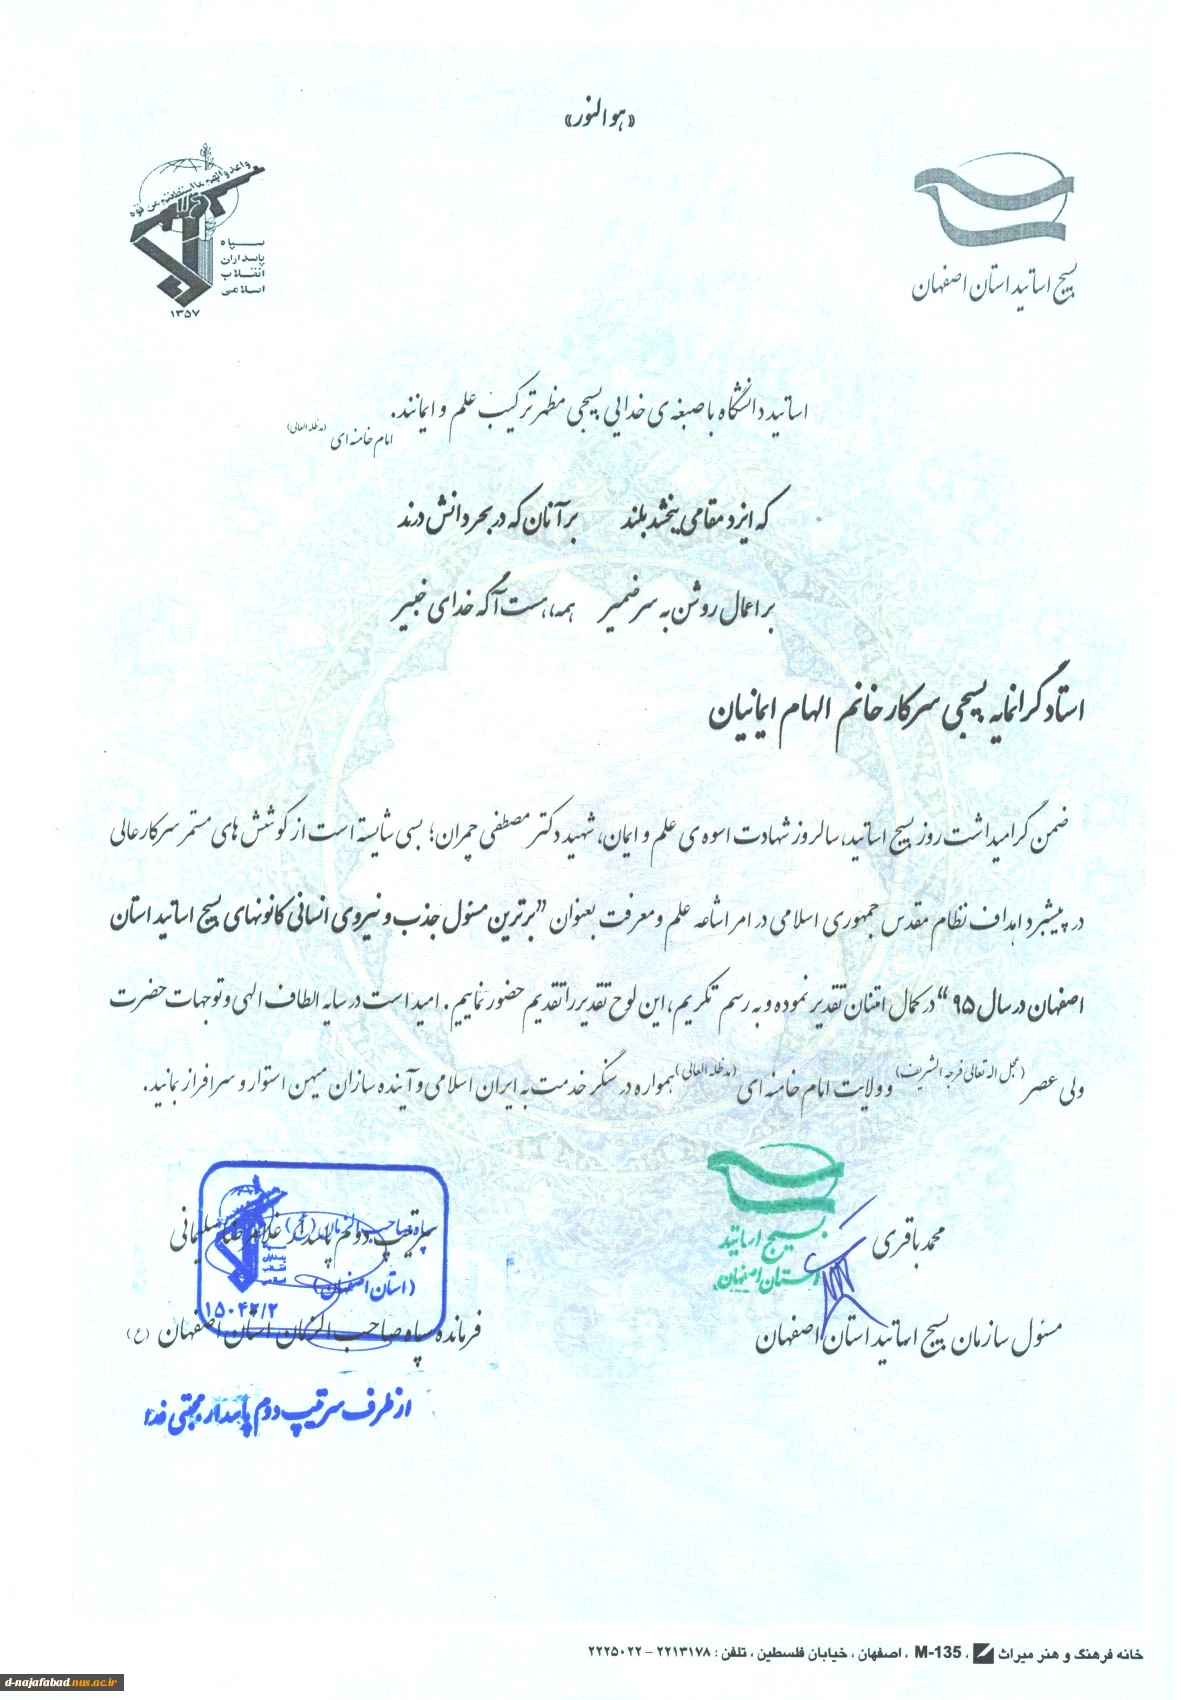 «هوالنور»
واعدوا لهم ما استطعتم من قوه
سپاه
پاسداران
انقلاب
اسلامی
۱۳۵۷
بسیج اساتید استان اصفهان
اساتید دانشگاه با صبغه ی خدایی بسیجی مظهر ترکیب علم و ایمانند.
امام خامنه ای (مدظله العالی)
که ایزد مقامی ببخشد بلند بر آنان که در بحر دانش درند
بر اعمال روشن به سر ضمیر همه، هست آگه خدای خبیر
استاد گرانمایه بسیجی سرکار خانم الهام ایمانیان
ضمن گرامیداشت روز بسیج اساتید، سالروز شهادت اسوه ی علم و ایمان، شهید دکتر مصطفی چمران؛ بسی شایسته است از کوشش های مستمر سرکارعالی
در پیشبرد اهداف نظام مقدس جمهوری اسلامی در امر اشاعه علم و معرفت بعنوان "برترین مسئول جذب و نیروی انسانی کانونهای بسیج اساتید استان
اصفهان در سال ۹۵" در کمال امتنان تقدیر نموده و به رسم تکریم، این لوح تقدیر را تقدیم حضور نماییم. امید است در سایه الطاف الهی و توجهات حضرت
ولی عصر (عجل اله تعالی فرجه الشریف) و ولایت امام خامنه ای (مدظله العالی) همواره در سنگر خدمت به ایران اسلامی و آینده سازان میهن استوار و سرافراز بمانید.
بسیج اساتید
استان اصفهان
محمد باقری
مسئول سازمان بسیج اساتید استان اصفهان
سرتیپ دوم پاسدار غلامرضا سلیمانی
(استان اصفهان)
۱۵۰۴۲/۲
فرمانده سپاه صاحب الزمان استان اصفهان (ع)
از طرف سرتیپ دوم پاسدار مجتبی فدا
خانه فرهنگ و هنر میراث ، M-135 ، اصفهان ، خیابان فلسطین ، تلفن : ۲۲۱۳۱۷۸ - ۲۲۲۵۰۲۲
d-najafabad.nus.ac.ir